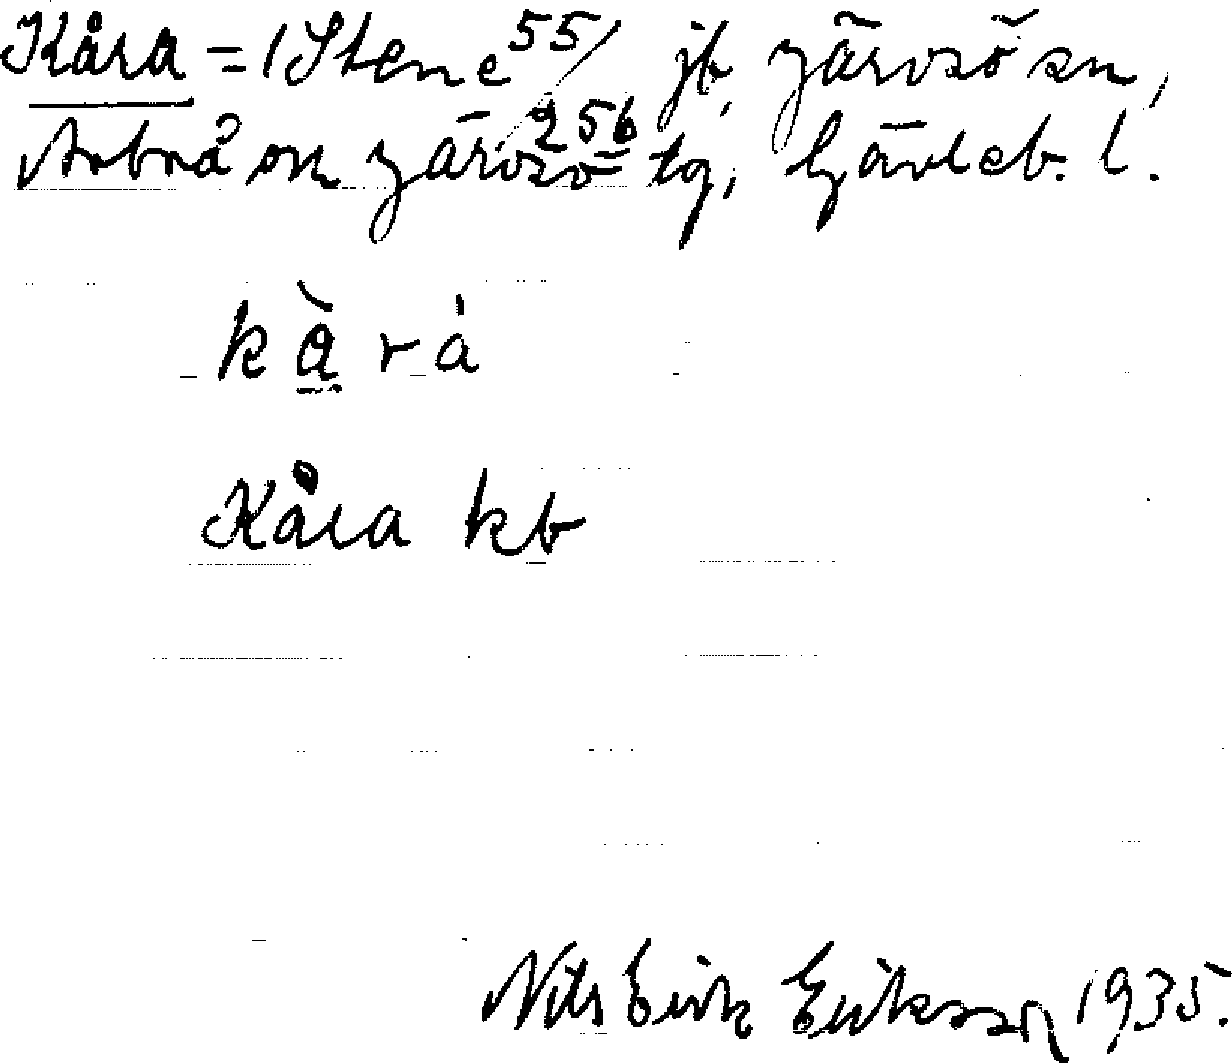 Kåra = 1 Stene 55/256 jb, Järvsö sn,
Arbrå o Järvsö tg, Gävleb. l.
kàrá
Kåra kb
Nils Eirik Eriksson 1935.